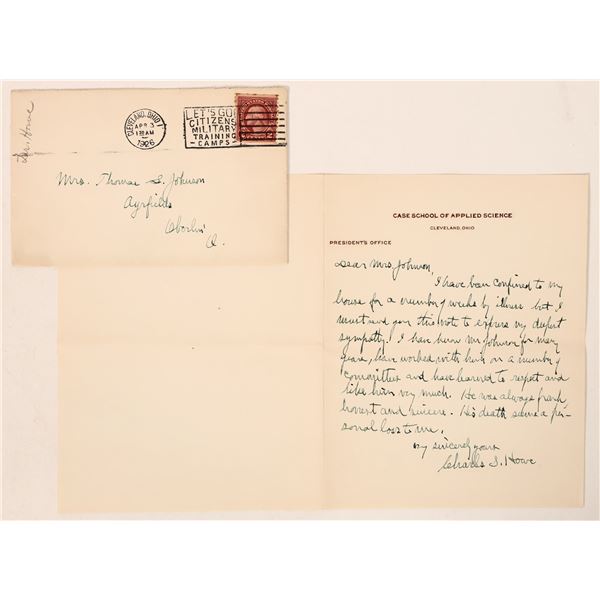 Mrs. Howe
CLEVELAND, OHIO
APR 3
1 30 AM
1926
LET'S GO!
CITIZENS
MILITARY
TRAINING
CAMPS
2
Mrs. Thomas S. Johnson
Ayrfields
Oberlin
O.
CASE SCHOOL OF APPLIED SCIENCE
CLEVELAND, OHIO
PRESIDENT'S OFFICE
Dear Mrs. Johnson,
I have been confined to my
house for a number of weeks by illness but I
must send you this note to express my deepest
sympathy. I have known Mr Johnson for many
years, have worked with him on a number of
committees and have learned to respect and
like him very much. He was always frank
honest and sincere. His death seems a per-
sonal loss to me.
sincerely yours
Charles S. Howe